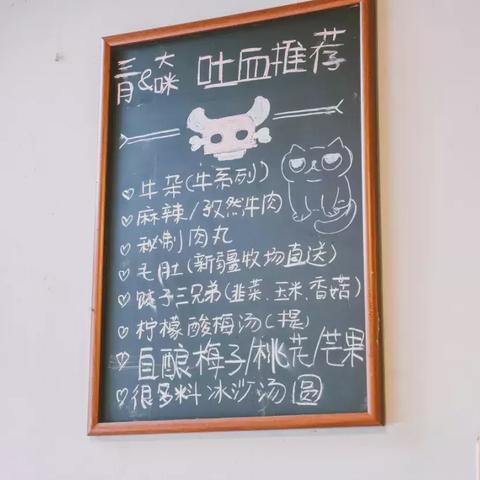 三月&大咪 吐血推荐
牛杂(牛系列)
麻辣/孜然牛肉
秘制肉丸
毛肚(新疆牧场直送)
饺子三兄弟(韭菜、玉米、香菇)
柠檬酸梅汤(提)
自酿梅子/桃花/芒果
很多料冰沙汤圆